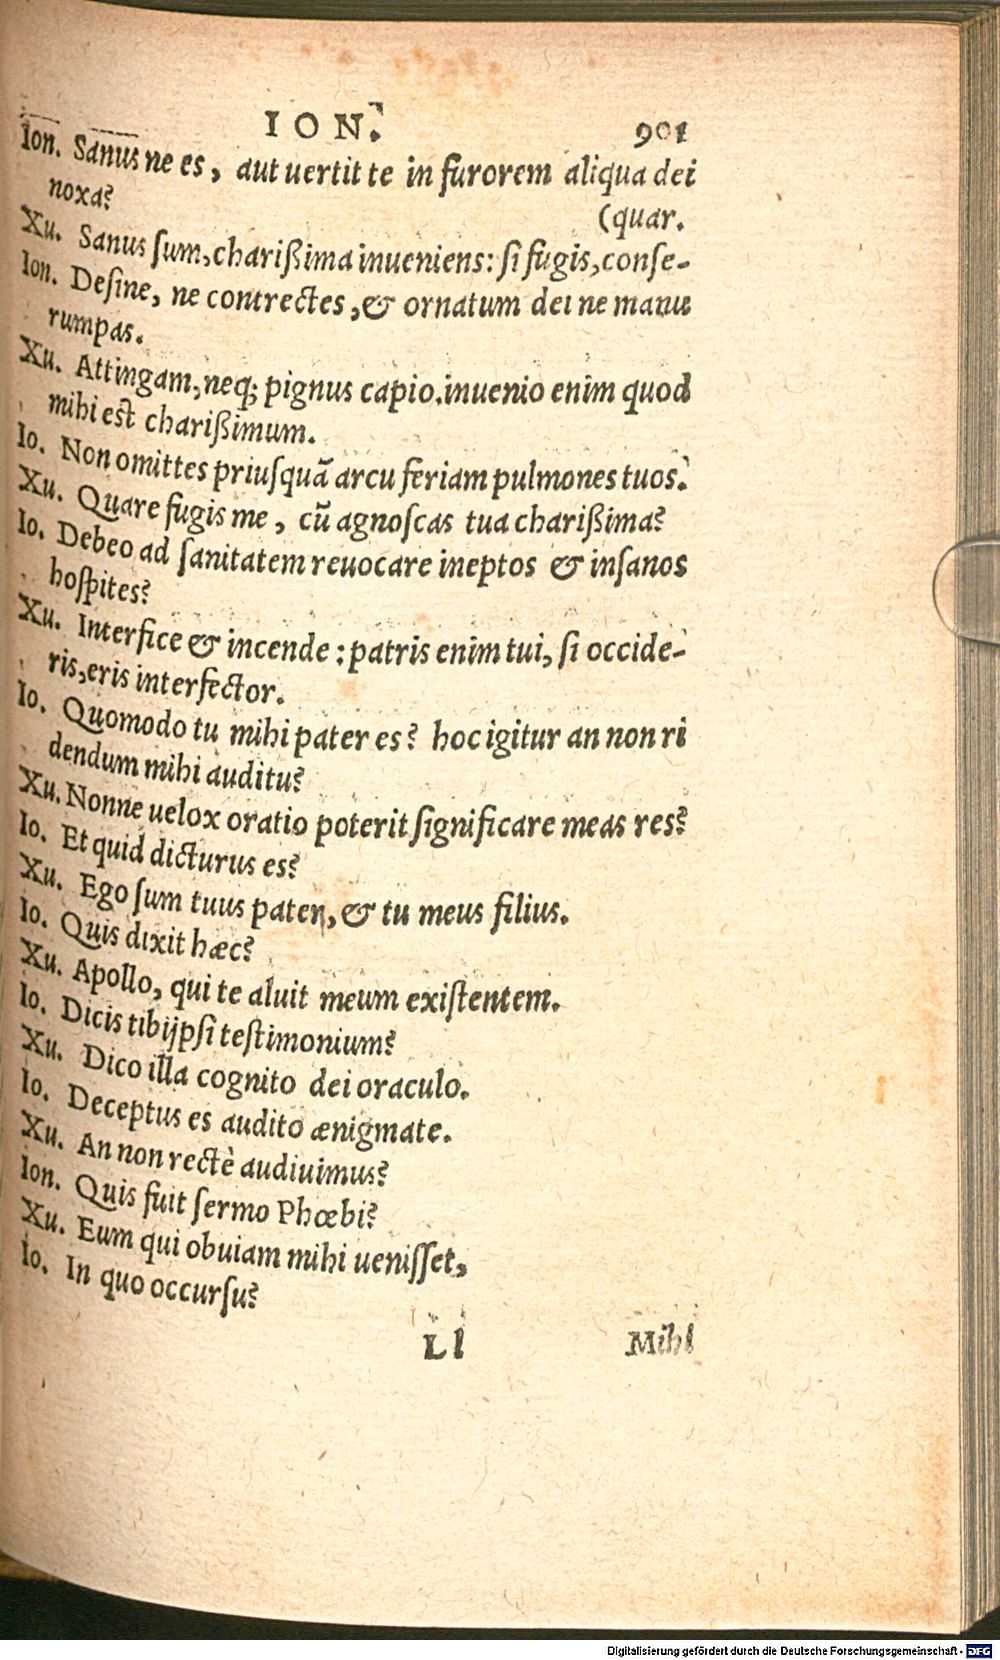 ION. 901
Ion. Sanus ne es, aut uertit te in furorem aliqua dei
noxa? (quar.
Xu. Sanus sum, charißima inueniens: si fugis, conse-
Ion. Desine, ne contrectes, & ornatum dei ne manu
rumpas.
Xu. Attingam, neq; pignus capio. inuenio enim quod
mihi est charißimum.
Io. Non omittes priusquã arcu feriam pulmones tuos.
Xu. Quare fugis me, cũ agnoscas tua charißima?
Io. Debeo ad sanitatem reuocare ineptos & insanos
hospites?
Xu. Interfice & incende: patris enim tui, si occide-
ris, eris interfector.
Io. Quomodo tu mihi pater es? hoc igitur an non ri
dendum mihi auditu?
Xu. Nonne uelox oratio poterit significare meas res?
Io. Et quid dicturus es?
Xu. Ego sum tuus pater, & tu meus filius.
Io. Quis dixit hæc?
Xu. Apollo, qui te aluit meum existentem.
Io. Dicis tibijpsi testimonium?
Xu. Dico illa cognito dei oraculo.
Io. Deceptus es audito ænigmate.
Xu. An non rectè audiuimus?
Ion. Quis fuit sermo Phœbi?
Xu. Eum qui obuiam mihi uenisset,
Io. In quo occursu?
Ll Mihi
Digitalisierung gefördert durch die Deutsche Forschungsgemeinschaft - DFG